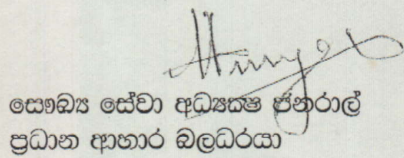 සෞඛ්‍ය සේවා අධ්‍යක්ෂ ජනරාල්
ප්‍රධාන ආහාර බලධරයා